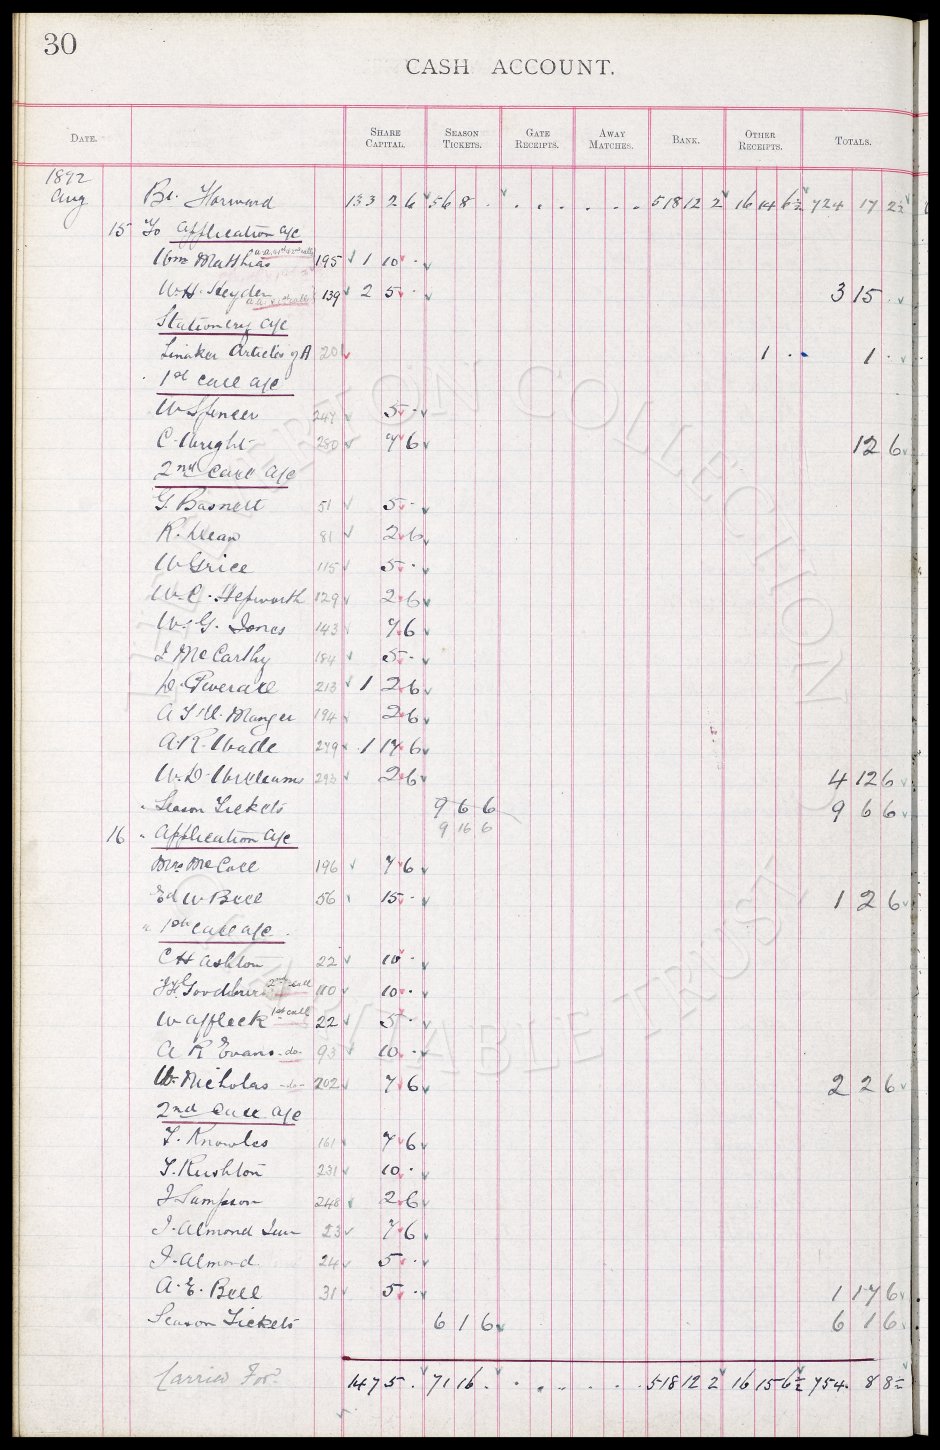 30
CASH ACCOUNT.
DATE. SHARE CAPITAL. SEASON TICKETS. GATE RECEIPTS. AWAY MATCHES. BANK. OTHER RECEIPTS. TOTALS.
1892
Aug Bt. Forward 133 2 6 56 8 . . . . . . . 518 12 2 16 14 6½ 724 17 2½
15 To Application a/c
Wm Matthias 195 1 10 .
W.H. Heyden 139 2 5 . 3 15 .
Stationery a/c
Linaker Articles of A 20 1 . . 1 . .
1st Call a/c
W Spencer 247 5 .
C. Wright 280 7 6 12 6
2nd Call a/c
G. Basnett 51 5 .
R. Dean 81 2 6
W Grice 115 5 .
W. C. Hepworth 129 2 6
W. G. Jones 143 7 6
J McCarthy 184 5 .
D. Peverall 213 1 2 6
A T U. Manger 194 2 6
A.R. Walle 279 1 17 6
W. D. Williams 293 2 6 4 12 6
" Season Tickets 9 6 6 9 6 6
9 16 6
16 " Application a/c
Mrs McColl 196 7 6
Ed W Bell 56 15 . 1 2 6
" 1st Call a/c
C H Ashton 22 10 .
2nd call 110 10 .
W Affleck 1st call 22 5 .
A R Evans -do- 93 10 .
W. Nicholas -do- 202 7 6 2 2 6
2nd Call a/c
T. Knowles 161 7 6
T. Rushton 231 10 .
J Sampson 248 2 6
J. Almond Jun 23 7 6
J. Almond 24 5 .
A. E. Bell 31 5 . 1 17 6
Season Tickets 6 1 6 6 1 6
Carried For. 147 5 . 71 16 . . . . . . . 518 12 2 16 15 6½ 754 8 8½
EVERTON COLLECTION
CHARITABLE TRUST